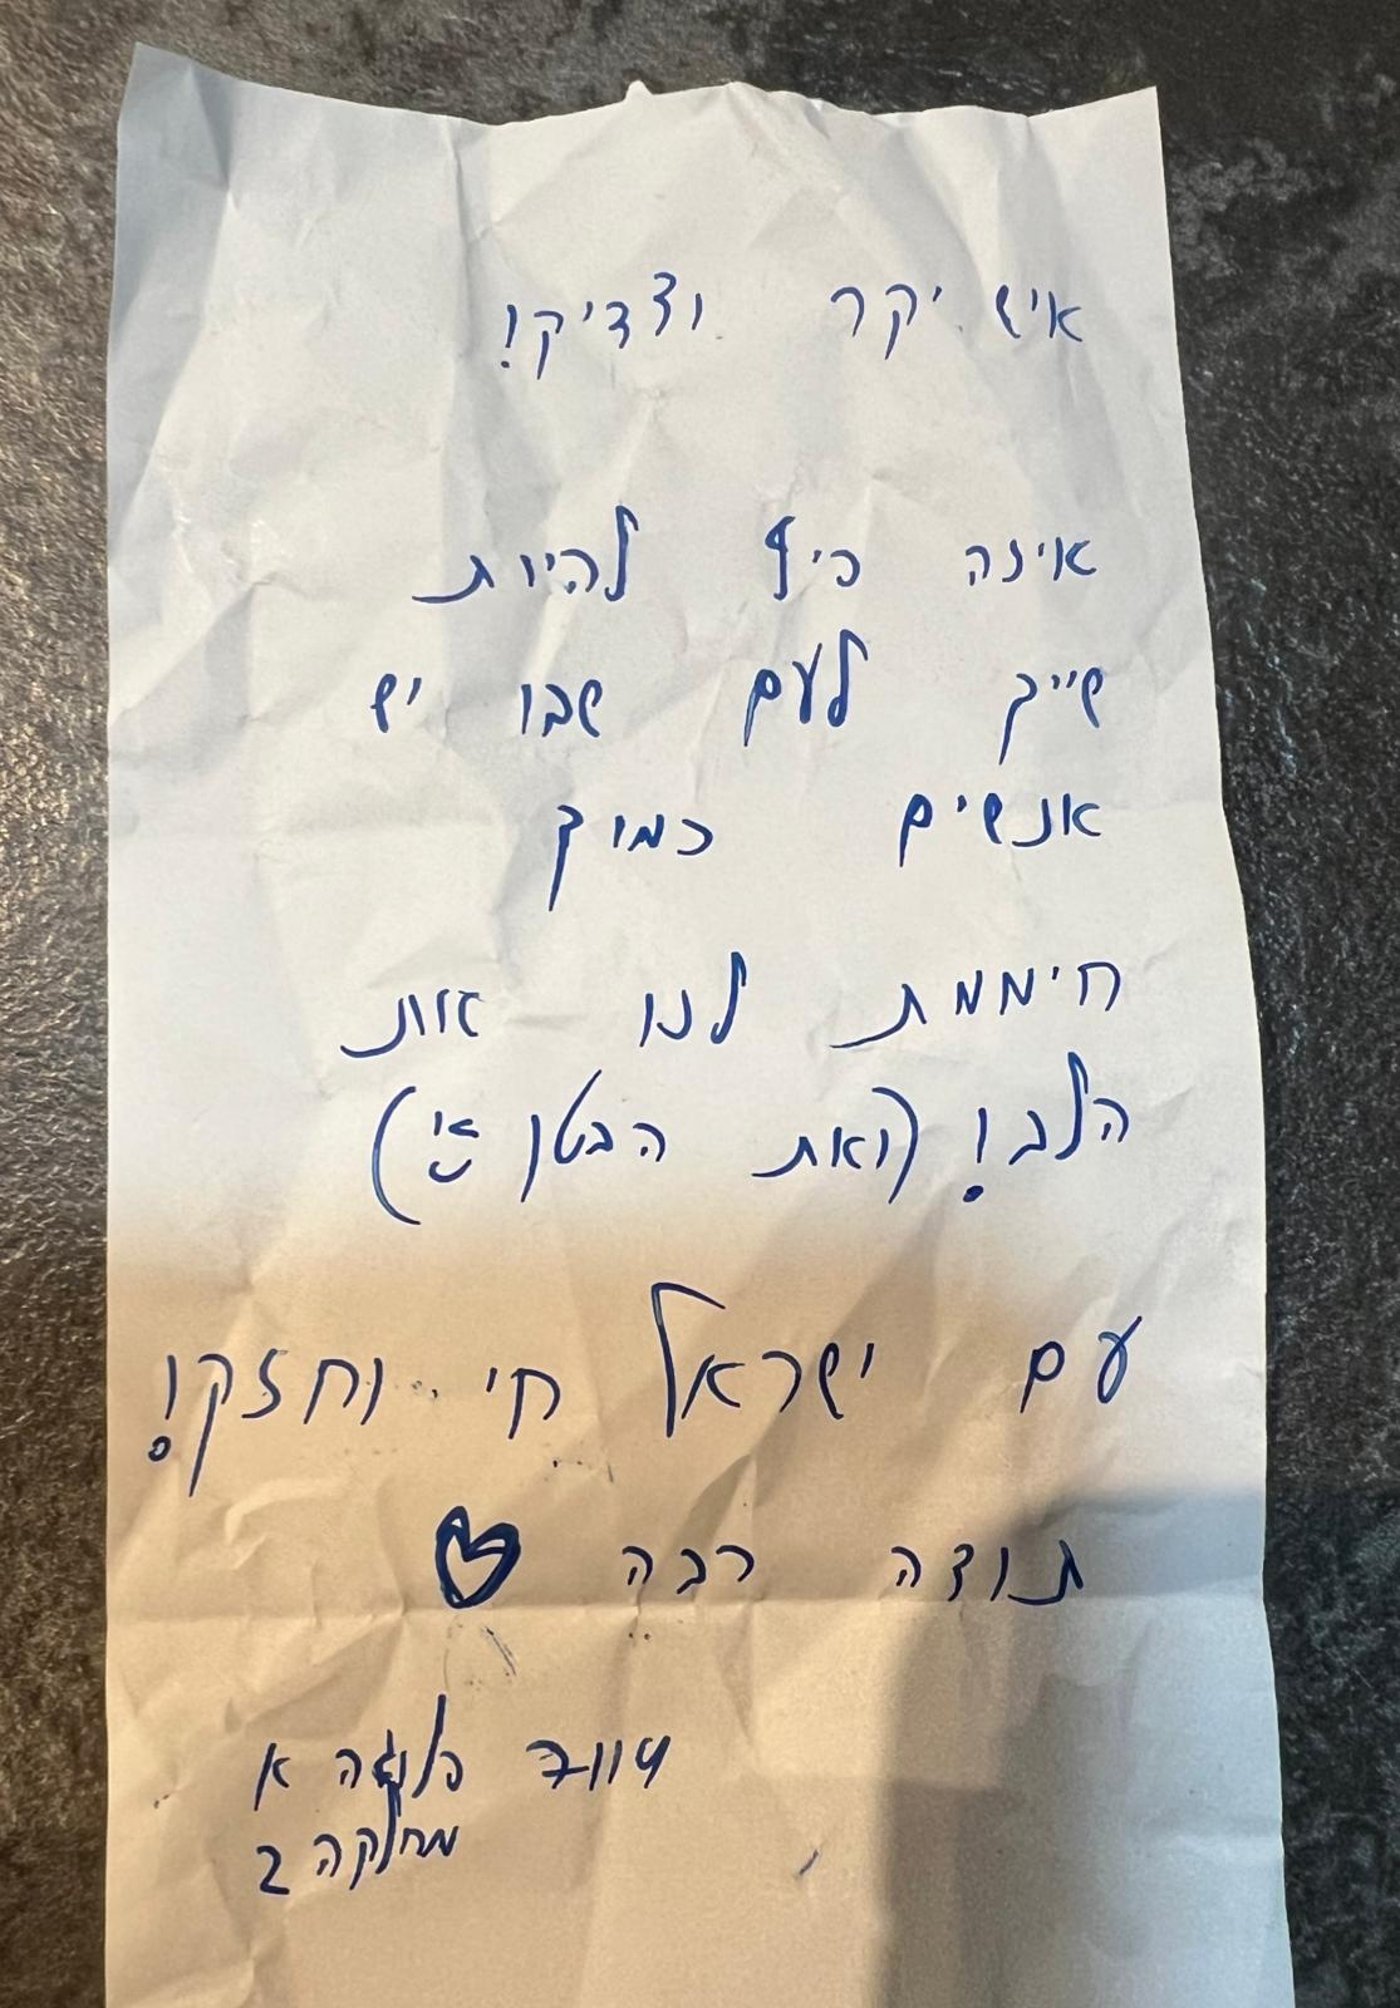 איש יקר וצדיק!
איזה כיף להיות
שייך לעם שבו יש
אנשים כמוך
חיממת לנו את
הלב! (ואת הבטן)
עם ישראל חי וחזק!
תודה רבה
פלוגה א
מחלקה 2